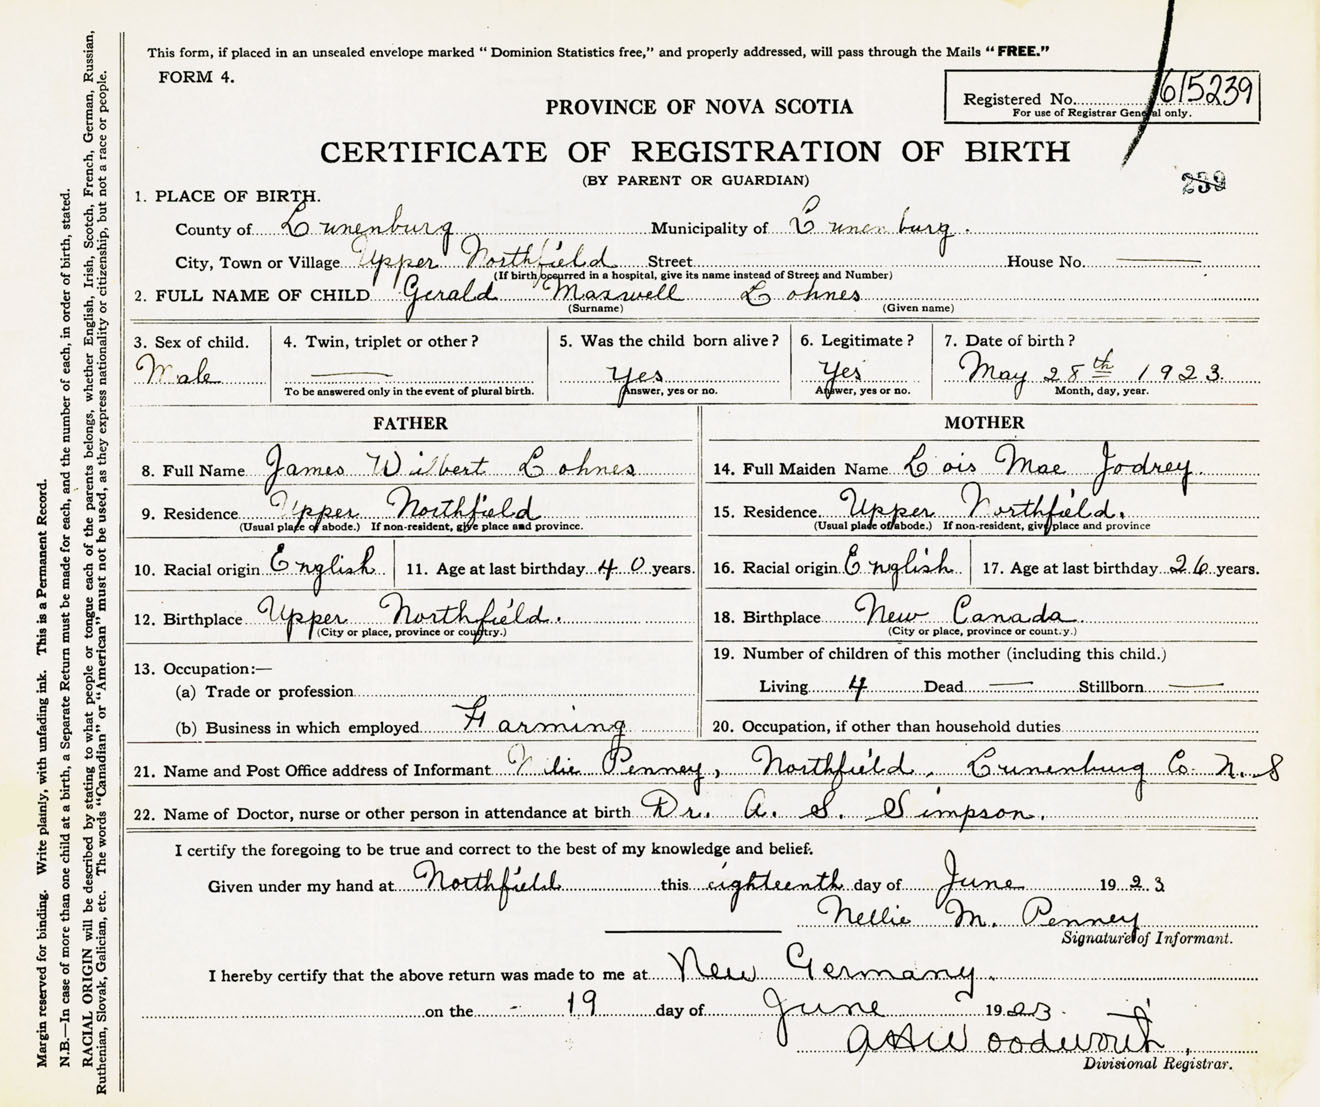 This form, if placed in an unsealed envelope marked "Dominion Statistics free," and properly addressed, will pass through the Mails "FREE."
FORM 4.
Registered No. 615239
For use of Registrar General only.
PROVINCE OF NOVA SCOTIA
CERTIFICATE OF REGISTRATION OF BIRTH
(BY PARENT OR GUARDIAN)
239
1. PLACE OF BIRTH.
County of Lunenburg Municipality of Lunenburg.
City, Town or Village Upper Northfield Street House No. ——
(If birth occurred in a hospital, give its name instead of Street and Number)
2. FULL NAME OF CHILD Gerald Maxwell Lohnes
(Surname) (Given name)
3. Sex of child. 4. Twin, triplet or other? 5. Was the child born alive? 6. Legitimate? 7. Date of birth?
Male —— Yes Yes May 28th 1923.
To be answered only in the event of plural birth. Answer, yes or no. Answer, yes or no. Month, day, year.
FATHER
8. Full Name James Wilbert Lohnes
9. Residence Upper Northfield
(Usual place of abode.) If non-resident, give place and province.
10. Racial origin English 11. Age at last birthday 40 years.
12. Birthplace Upper Northfield.
(City or place, province or country.)
13. Occupation:—
(a) Trade or profession
(b) Business in which employed Farming
MOTHER
14. Full Maiden Name Lois Mae Jodrey.
15. Residence Upper Northfield.
(Usual place of abode.) If non-resident, give place and province
16. Racial origin English 17. Age at last birthday 26 years.
18. Birthplace New Canada
(City or place, province or country.)
19. Number of children of this mother (including this child.)
Living 4 Dead —— Stillborn ——
20. Occupation, if other than household duties
21. Name and Post Office address of Informant Penney, Northfield, Lunenburg Co. N.S
22. Name of Doctor, nurse or other person in attendance at birth Dr. A. S. Simpson.
I certify the foregoing to be true and correct to the best of my knowledge and belief.
Given under my hand at Northfield this eighteenth day of June 1923
Nellie M. Penney
Signature of Informant.
I hereby certify that the above return was made to me at New Germany.
on the - 19 day of June 1923.
Woodworth,
Divisional Registrar.
Margin reserved for binding. Write plainly, with unfading ink. This is a Permanent Record.
N.B.—In case of more than one child at a birth, a Separate Return must be made for each, and the number of each, in order of birth, stated.
RACIAL ORIGIN will be described by stating to what people or tongue each of the parents belongs, whether English, Irish, Scotch, French, German, Russian,
Ruthenian, Slovak, Galician, etc. The words "Canadian" or "American" must not be used, as they express nationality or citizenship, but not a race or people.